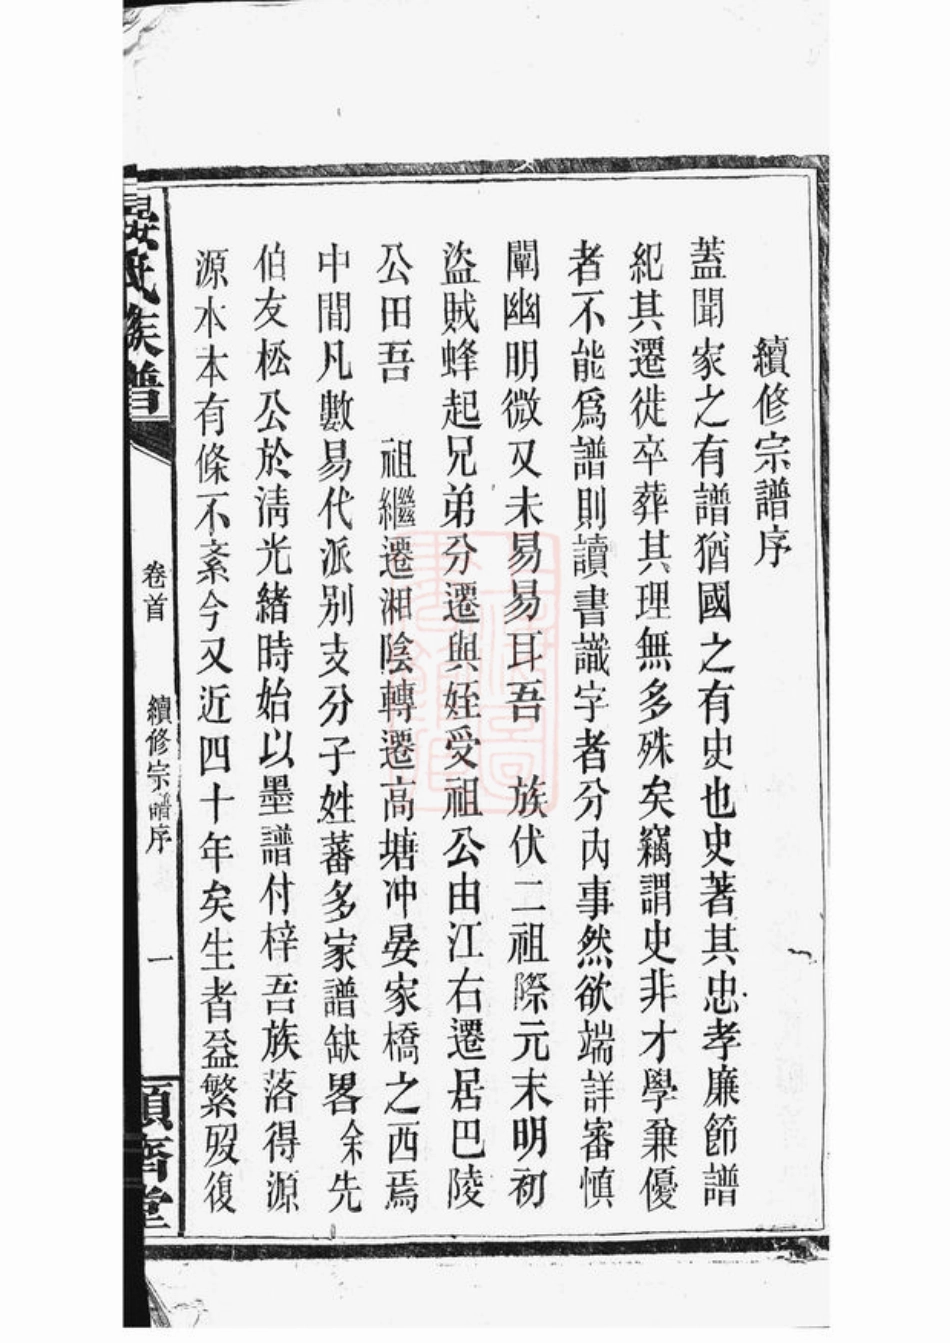 續修宗譜序
蓋聞家之有譜猶國之有史也史著其忠孝廉節譜
紀其遷徙卒葬其理無多殊矣竊謂史非才學兼優
者不能爲譜則讀書識字者分內事然欲端詳審慎
闡幽明微又未易易耳吾　族伏二祖際元末明初
盜賊蜂起兄弟分遷與姪受祖公由江右遷居巴陵
公田吾　祖繼遷湘陰轉遷高塘冲晏家橋之西焉
中間凡數易代派別支分子姓蕃多家譜缺畧余先
伯友松公於清光緒時始以墨譜付梓吾族落得源
源本本有條不紊今又近四十年矣生者益繁歿復
晏氏族譜
卷首
續修宗譜序
一
堂